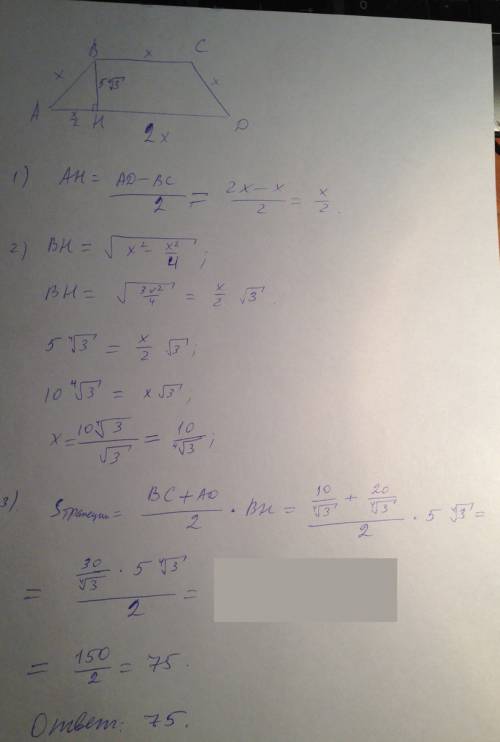 B x C
x 5∜3 x
A x/2 H D
2x
1) AH = (AD - BC)/2 = (2x - x)/2 = x/2.
2) BH = √(x² - x²/4);
BH = √(3x²/4) = x/2 √3.
5∜3 = x/2 √3;
10∜3 = x√3;
x = 10∜3/√3 = 10/∜3;
3) Sтрапеции = (BC + AD)/2 · BH = (10/∜3 + 20/∜3)/2 · 5∜3 =
= (30/∜3 · 5∜3)/2 =
= 150/2 = 75.
Ответ: 75.